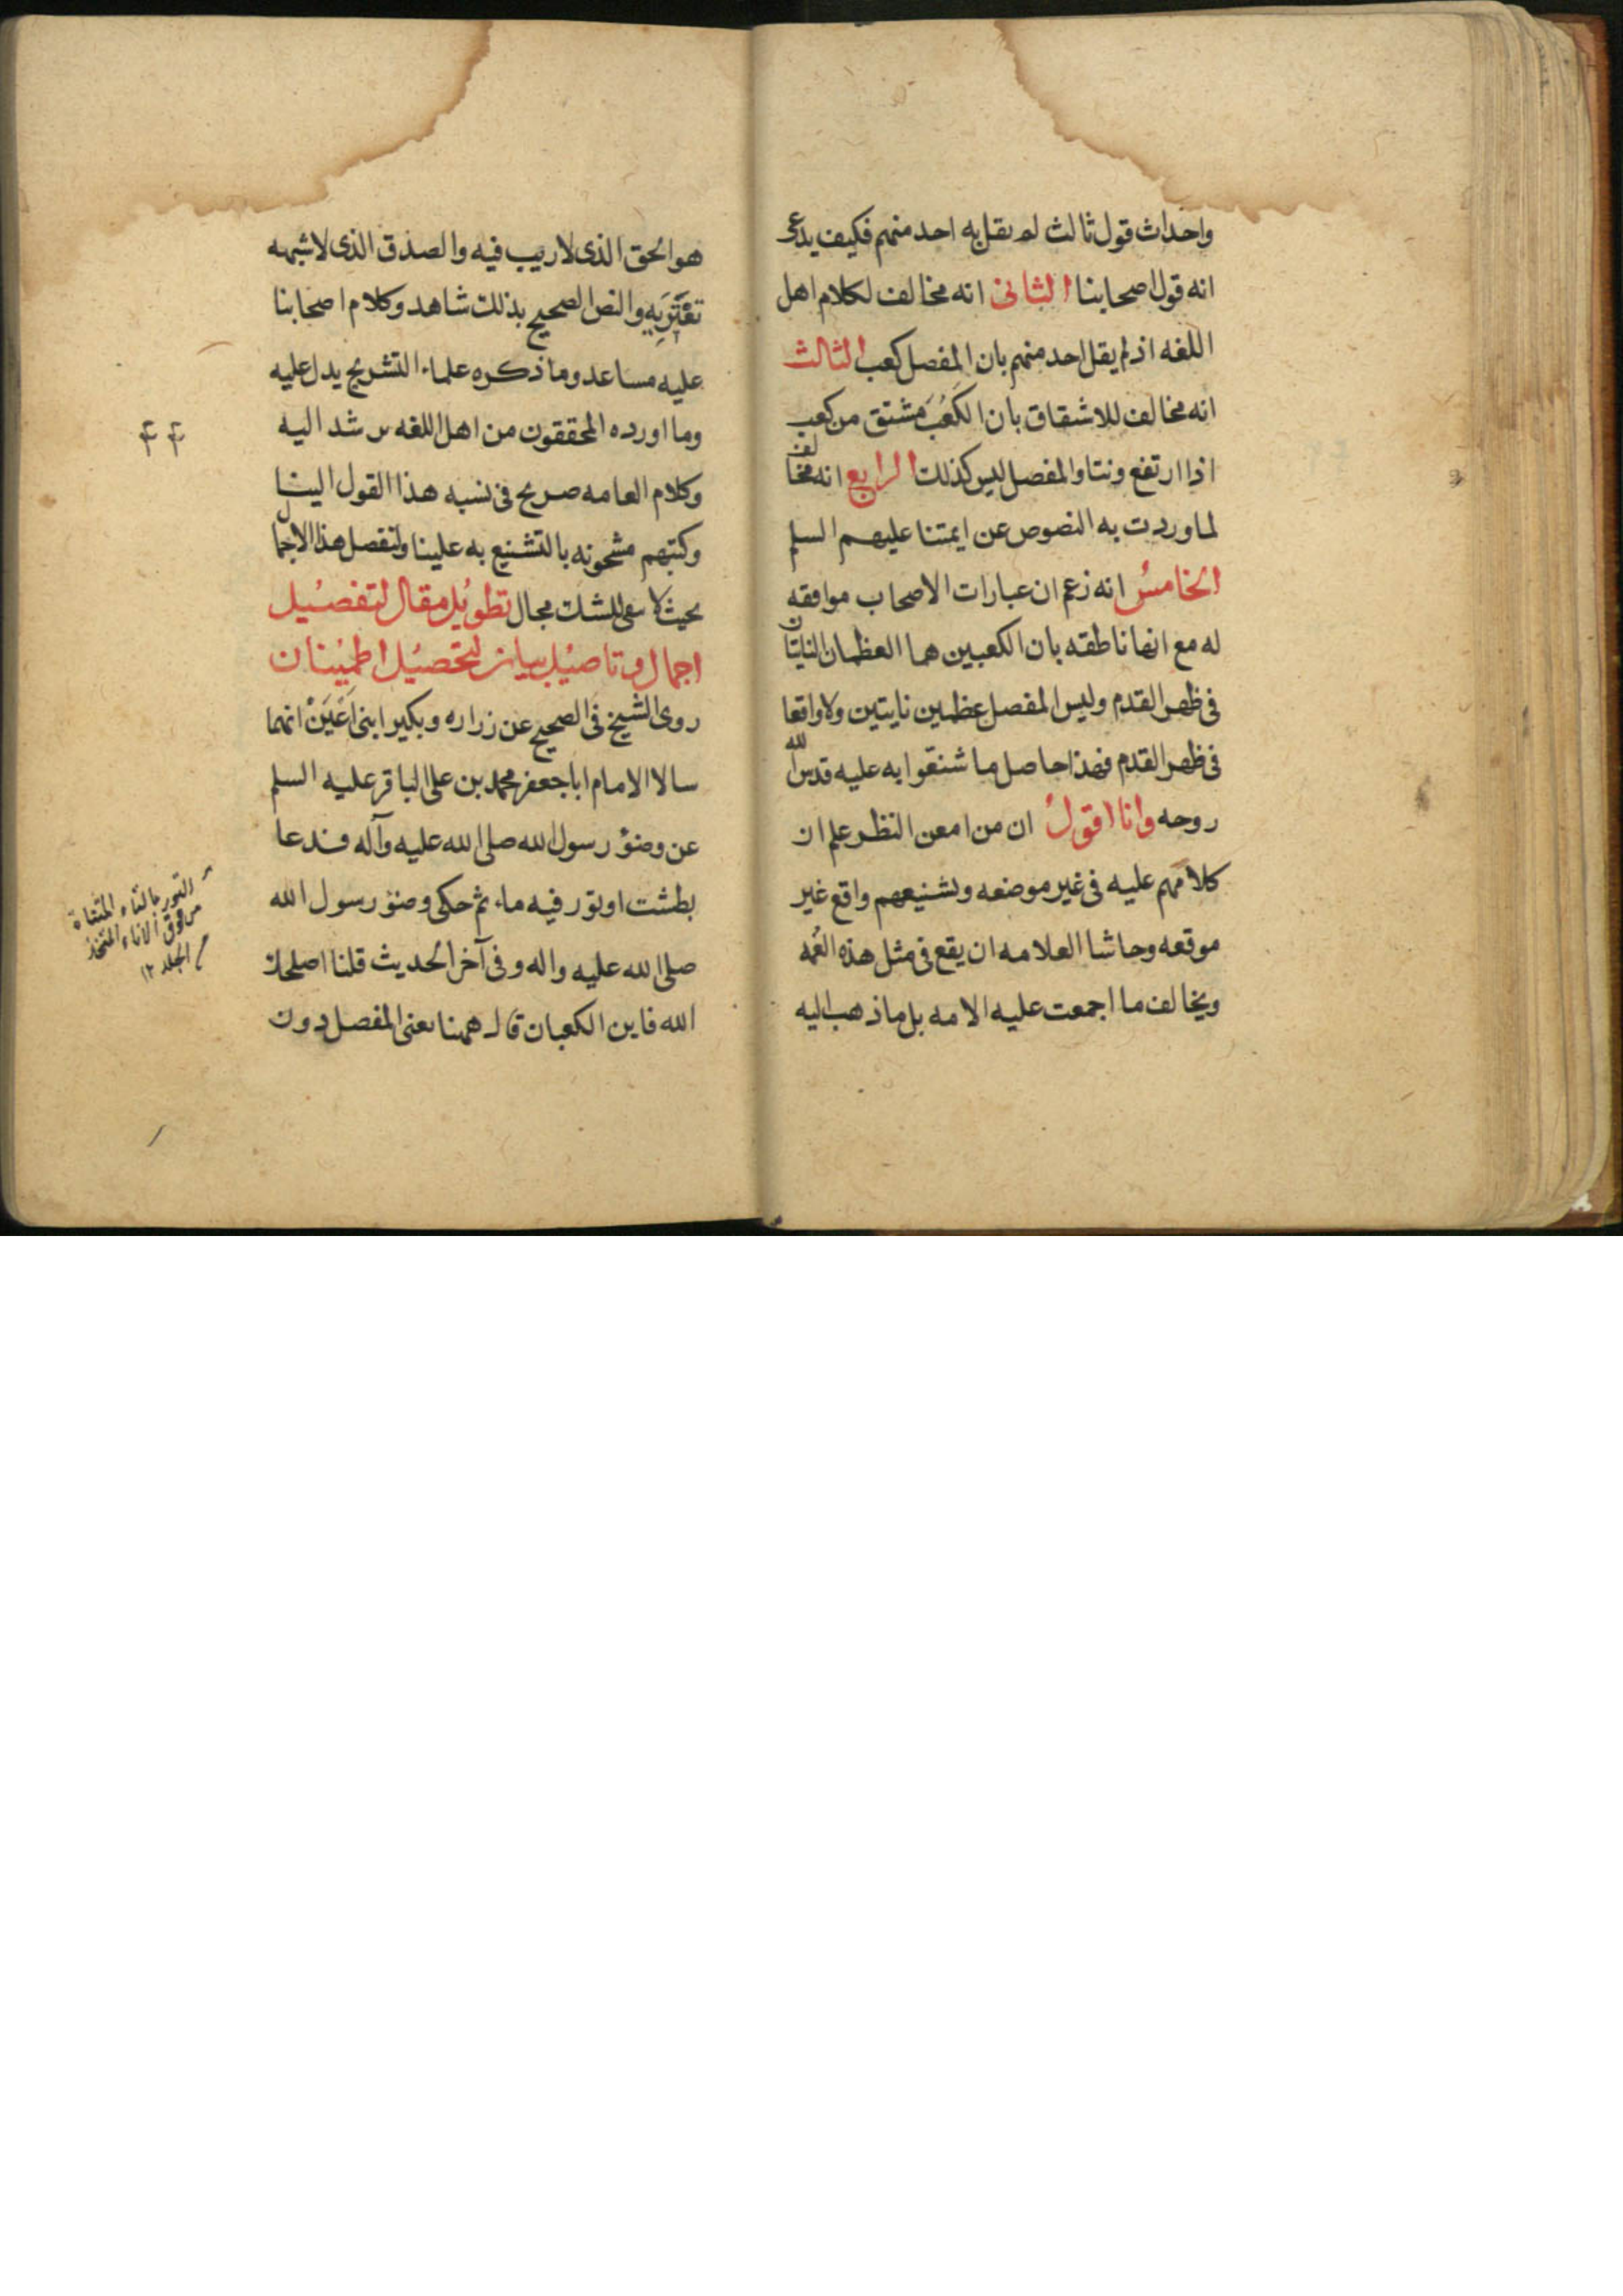 واحداث قول ثالث لم يقل به احد منهم فكيف يدعى
انه قول اصحابنا الثانى انه مخالف لكلام اهل
اللغه اذ لم يقل احد منهم بان المفصل كعب الثالث
انه مخالف للاشقاق بان الكعب مشتق من كعب
اذا ارتفع ونتا والمفصل ليس كذلك الرابع انه مخالف
لما وردت به النصوص عن ايمتنا عليهم السلم
الخامس انه زعم ان عبارات الاصحاب موافقه
له مع انها ناطقه بان الكعبين هما العظمان الناتيان
فى ظهر القدم وليس المفصل عظمين نايتين ولا واقعا
فى ظهر القدم فهذا حاصل ما شنعوا به عليه قدس الله
روحه وانا اقول ان من امعن النظر علم ان
كلامهم عليه فى غير موضعه وتشنيعهم واقع غير
موقعه وحاشا العلامه ان يقع فى مثل هذه الغمه
ويخالف ما اجمعت عليه الامه بل ما ذهب اليه
هو الحق الذى لا ريب فيه والصدق الذى لا شبهه
تعتريه والنص الصحيح بذلك شاهد وكلام اصحابنا
عليه مساعد وما ذكره علماء التشريح يدل عليه
وما اورده المحققون من اهل اللغه يرشد اليه
وكلام العامه صريح فى نسبه هذا القول الينا
وكتبهم مشحونه بالتشنيع به علينا ولنفصل هذا الاجمال
بحيث لا يبقى للشك مجال تطويل مقال لتفصيل
اجمال وتاصيل بيان لتحصيل اطمينان
روى الشيخ فى الصحيح عن زراره وبكير ابنى اعين انهما
سالا الامام ابا جعفر محمد بن على الباقر عليه السلم
عن وضؤ رسول الله صلى الله عليه وآله فدعا
بطشت او تور فيه ماء ثم حكى وضؤ رسول الله
صلى الله عليه واله وفى آخر الحديث قلنا اصلحك
الله فاين الكعبان قال ههنا يعنى المفصل دون
التور بالتاء المثناة
من فوق الاناء المتخذ
الجلد ١٢